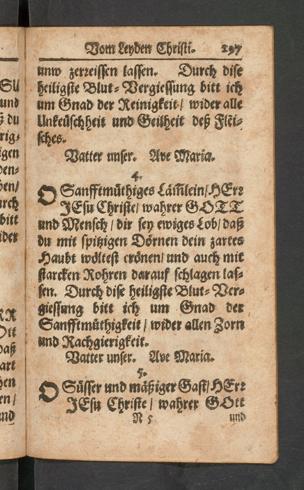 Vom Leyden Christi. 297
unw zerreissen lassen. Durch dise
heiligste Blut-Vergiessung bitt ich
um Gnad der Reinigkeit / wider alle
Unkeüschheit und Geilheit deß Flei-
sches.
Vatter unser. Ave Maria.
4.
O Sanfftmüthiges Lämlein / HErr
JEsu Christe / wahrer GOTT
und Mensch / dir sey ewiges Lob / daß
du mit spitzigen Dörnen dein zartes
Haubt wöltest crönen / und auch mit
starcken Rohren darauf schlagen las-
sen. Durch dise heiligste Blut-Ver-
giessung bitt ich um Gnad der
Sanfftmüthigkeit / wider allen Zorn
und Rachgierigkeit.
Vatter unser. Ave Maria.
5.
O Süsser und mäßiger Gast / HErr
JEsu Christe / wahrer GOtt
N 5 und